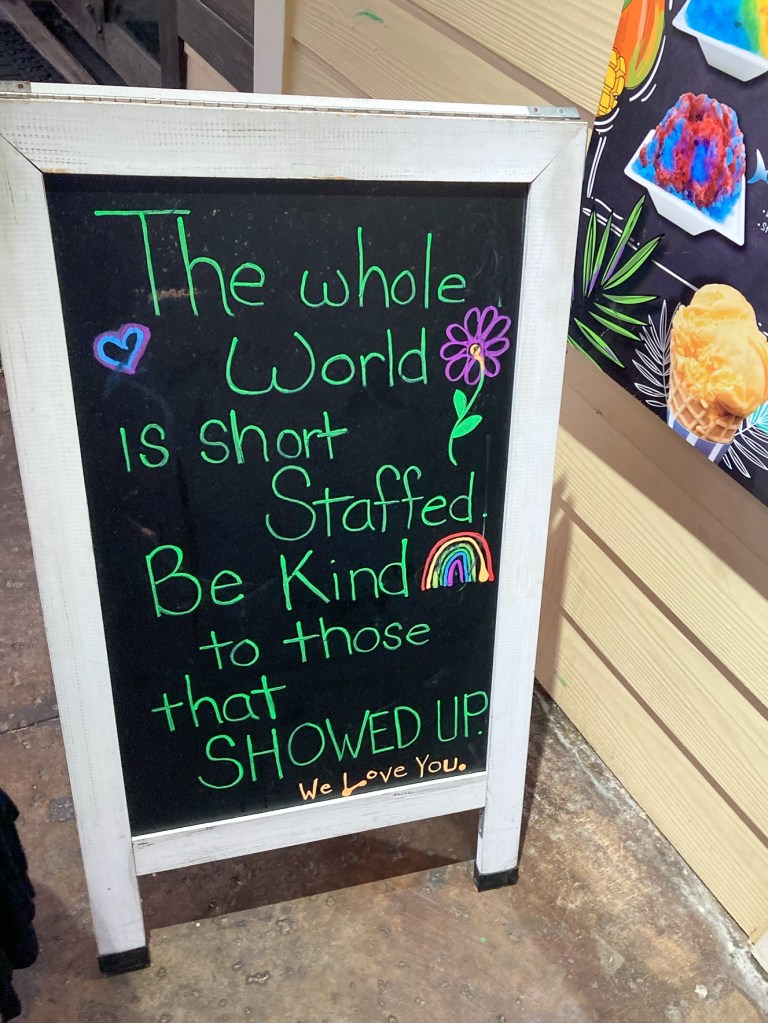 The whole
World
is short
Staffed.
Be Kind
to those
that
SHOWED UP.
We Love You.